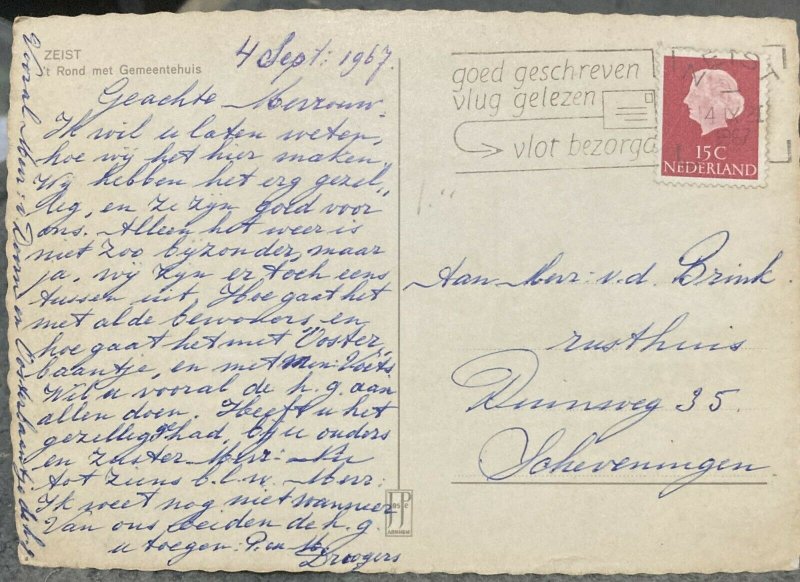 ZEIST
't Rond met Gemeentehuis
4 Sept: 1967.
Geachte Mevrouw.
Ik wil u laten weten,
hoe wij het hier maken,
Wij hebben het erg gezel„
lig, en ze zijn goed voor
ons. Alleen het weer is
niet zoo bijzonder, maar
ja, wij zijn er toch eens
tussen uit, Hoe gaat het
met al de bewoners, en
hoe gaat het met "Ooster„
baantje, en met Voets
Wil u vooral de h.g. aan
allen doen. Heeft u het
gezellig gehad, bij u ouders
en zuster Mevr: Nu
tot ziens b.l.w. Mevr:
Ik weet nog niet wanneer
Van ons beiden de h.g.
u toegen: P. en
Droogers
Vooral en Oosterbaantje de h.g.
goed geschreven
vlug gelezen
vlot bezorgd
15 C
NEDERLAND
Aan Mevr: v.d. Brink.
rusthuis
Duinweg 35.
Scheveningen
JosPé
ARNHEM